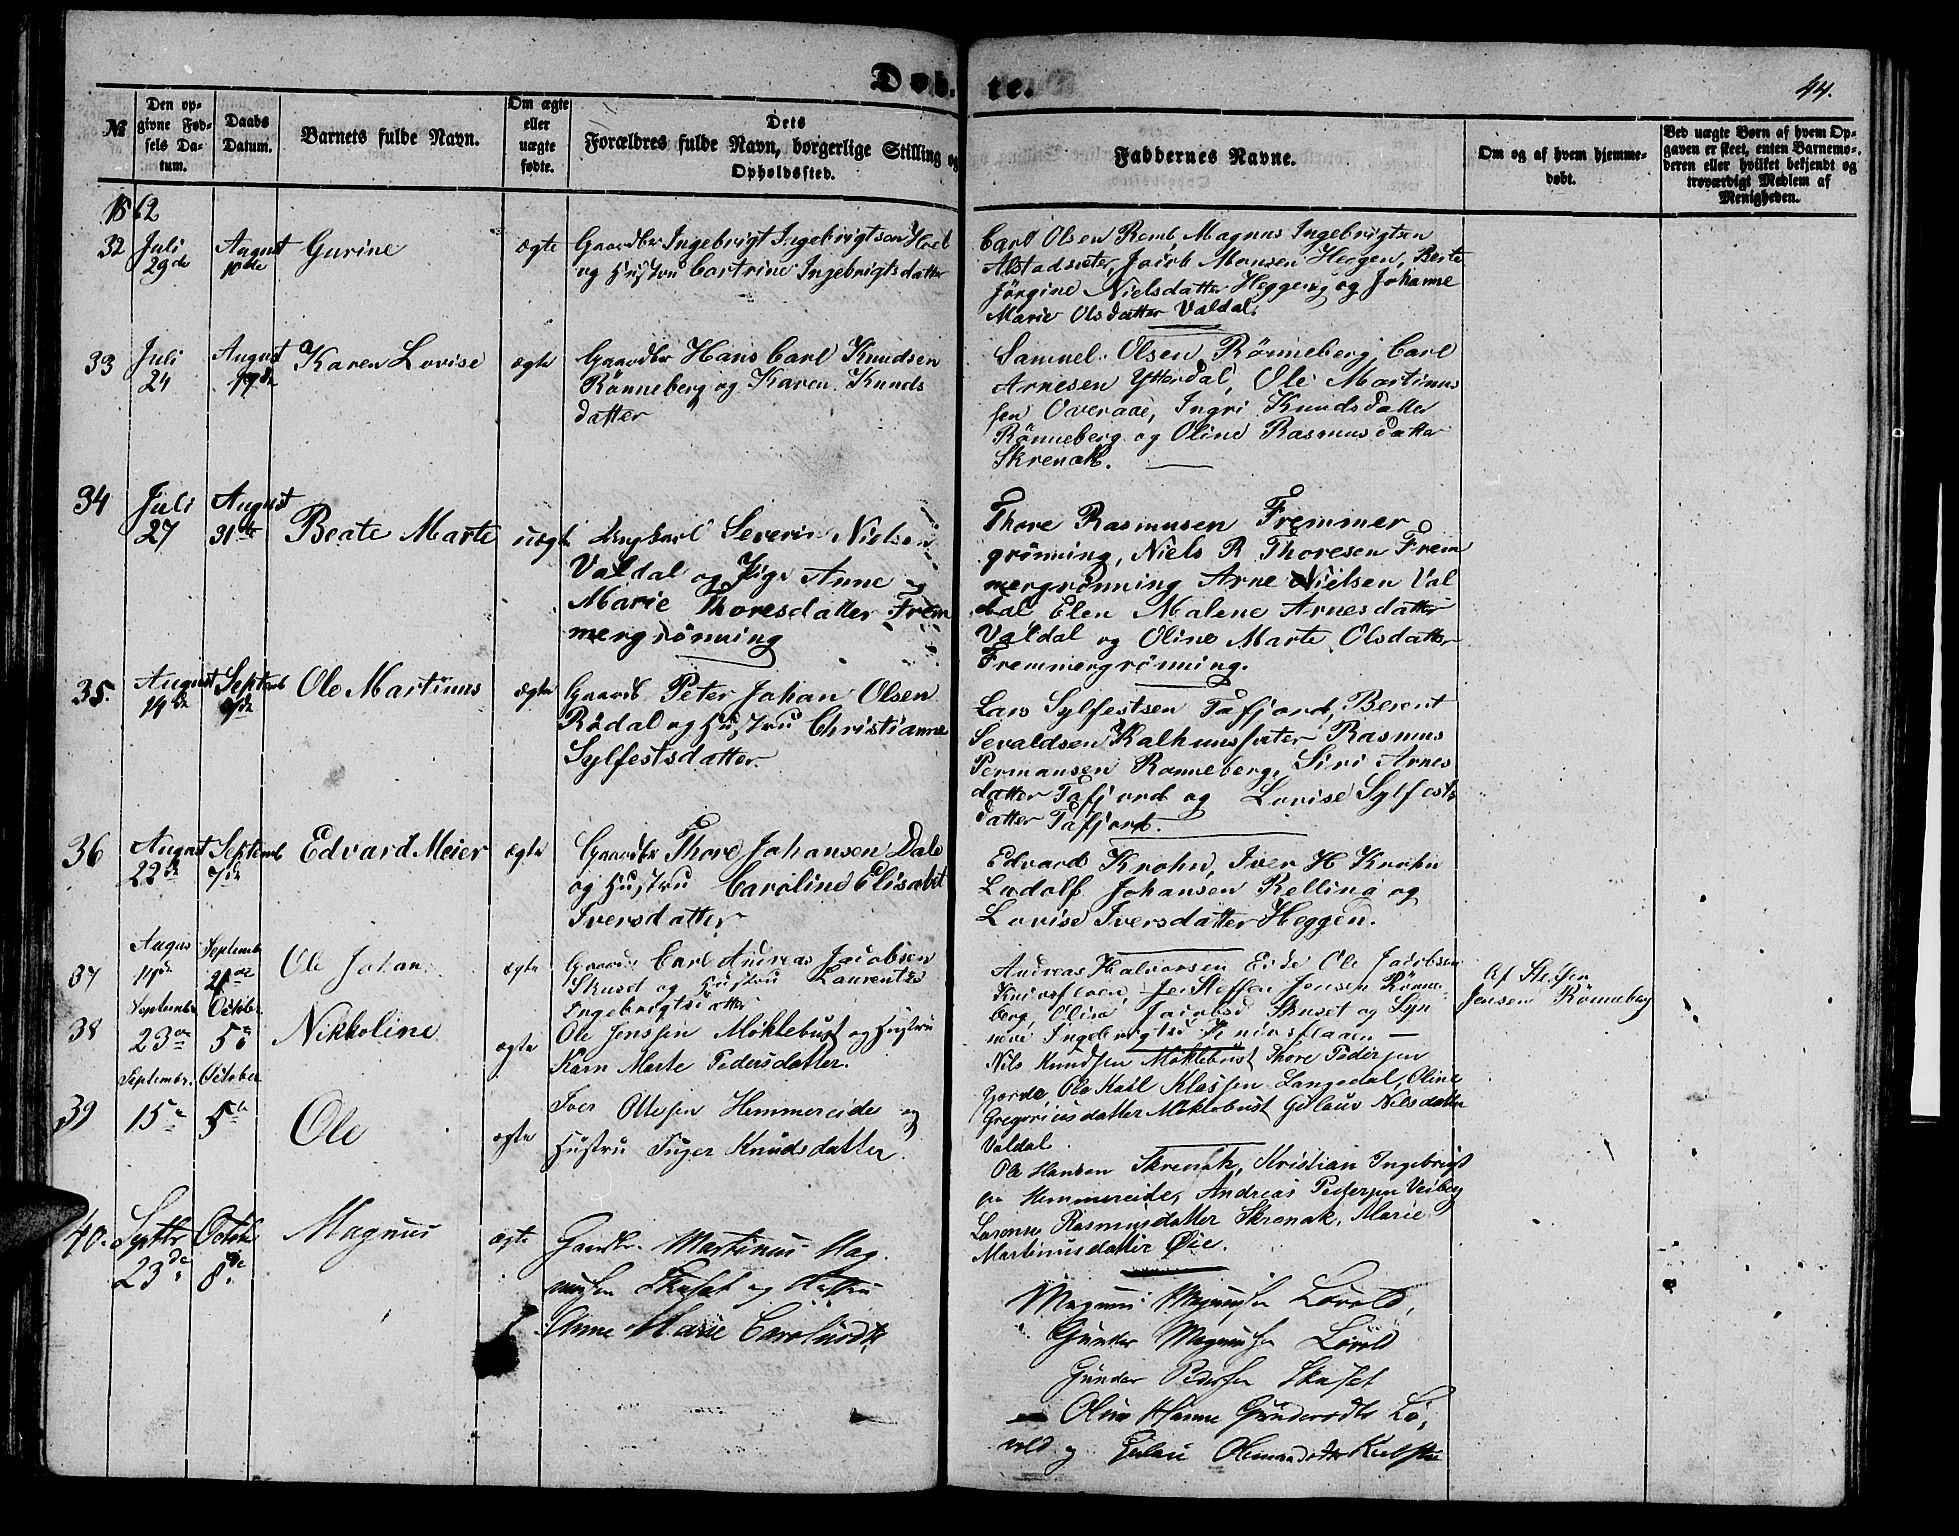 Døb- te.
44.
№
Den op-
givne Fød-
sels Da-
tum.
Daabs
Datum.
Barnets fulde Navn.
Om ægte
eller
uægte
fødte.
Dets
Forældres fulde Navn, borgerlige Stilling og
Opholdssted.
Faddernes Navne.
Om og af hvem hjemme-
døbt.
Ved uægte Børn af hvem Op-
gaven er skeet, enten Barnemo-
deren eller hvilket bekjendt og
troværdigt Medlem af
Menigheden.
1862
32 Juli 29de August 10de Gurine ægte
Gaardbr Ingebrigt Ingebrigtsen
og Hustru Cartrine Ingebrigtsdatter
Carl Olsen Remb, Magnus Ingebrigtsen
Alstadsæter, Jacob Monsen Heggen, Berte
Jörgine Nielsdatter Heggen og Johanne
Marie Olsdatter Valdal.
33 Juli 24 August Karen Lovise ægte
Gaardbr Hans Carl Knudsen
Rönneberg og Karen Knuds
datter
Samuel Olsen Rönneberg, Carl
Arnesen Ytterdal, Ole Martinus
sen Overaae, Ingri Knudsdatter
Rönneberg og Oline Rasmusdatter
Skrenak.
34 Juli 27 August 31te Beate Marte uægte
Ungkarl Severin Nielsen
Valdal og Pige Anne
Marie Thoresdatter Frem
mergrönning
Thore Rasmusen Fremmer
grönning, Niels R Thoresen Frem
mergrönning Arne Nielsen Val
dal Elen Malene Arnesdatter
Valdal og Oline Marte Olsdatter
Fremmergrönning.
35. August 14de Septemb 7de Ole Martinus ægte
Gaardb Peter Johan Olsen
Rödal og Hustru Christianne
Sylfestsdatter
Lars Sylfestsen Tafjord, Berent
Sevaldsen Kalhussæter Rasmus
Permansen Ronneberg, Siri Arnes
datter Tafjord og Lovise Sylfests
datter Tafjord.
36 August 22de Septemb 7de Edvard Meier ægte
Gaardbr Thore Johansen Dale
og Hustru Caroline Elisabet
Iversdatter
Edvard Krohn, Iver H Krohn
Ludolf Johansen Relling og
Lovise Iversdatter Heggen.
37 Augus 14de Septembr 21de Ole Johan ægte
Gaardb Carl Andreas Jacobsen
Skuset og Hustru Laurentze
Ingebrigtsdatter
Andreas Halvorsen Eide Ole Jacobsen
Steffen Jensen Rönne-
berg Olina Jacobsd Skuset og Syn
növe Ingebrigtsd
Af Steffen
Jensen Rönneberg
38 September 23de October 5te Nikkoline ægte
Ole Jenssen Möklebust og Hustru
Karn Marte Pedersdatter.
Nils Knudsen Möklebust Thore Pedersen
Gjorde, Ole Karl Klassen Langedal, Oline
Gregoriusdatter Möklebust Gjelaus Nilsdatter
Valdal.
39 Septembr. 15de October 5te Ole ægte
Iver Ottesen Hemmereide og
Hustru Inger Knudsdatter.
Ole Hansen Skrenak, Kristian Ingebrigt
sen Hemmereide, Andreas Pedersen Veiberg
Rasmusdatter Skrenak, Marie
Martinusdatter Øie.
40. Septbr 23de October 8de Magnus ægte
Gaardbr. Martinus Mag
nusen Skuset og Hustru
Anne Marie
Magnus Magnusen Lövold,
Gunder Magnusen Lövold
Gunder Pedersen Skuset
Oline Hanne Gundersdtr Lö,
vold og